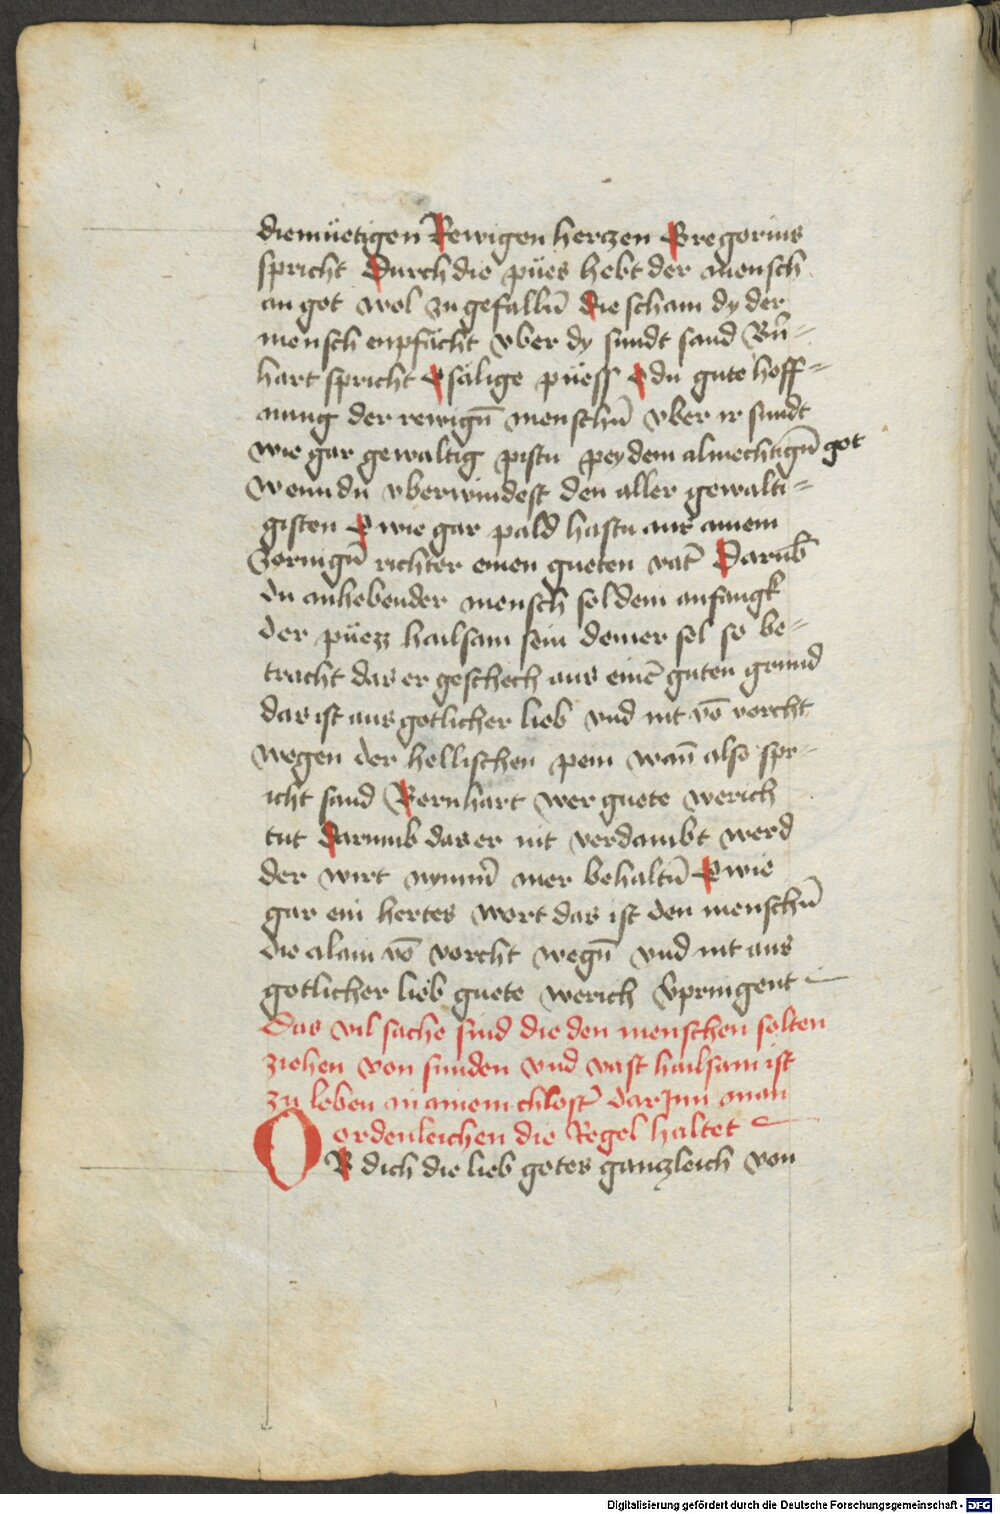 diemüetigen Rewigen herczen Gregorius
spricht Durch die pües hebt der mensch
an got wol zu gefallñ die scham dy der
mensch enpfächt vber dy sundt sand Bn̄-
hart spricht O sälige püess O du gute hoff-
nung der rewign̄ menschn̄ vber ir sundt
wie gar gewaltig pistu pey dem almechtign̄ got
wenn du vberwindest den aller gewalti-
gisten O wie gar pald hastu aus ainem
zornign̄ richter einen gueten vat̄ Darub̄
du anhebender mensch sol dein anfangk
der püezz hailsam sein deiner sel so be-
tracht das er geschech aus einē guten grund
das ist aus gotlicher lieb vnd nit vō vorcht
wegen der hellischen pein wan̄ also spr-
icht sand Bernhart wer guete werich
tut darumb das er nit verdambt werd
der wirt nymm̄ mer behaltn̄ O wie
gar ein hertes wort das ist den menschn̄
die alain vō vorcht wegn̄ vnd nit aus
gotlicher lieb guete werich vpringent
Das vil sache sind die den menschen solten
ziehen von sunden vnd vast hailsam ist
zu leben in ainem chlost̄ darJnn man
ordenleichen die Regel haltet
OB dich die lieb gotes ganczleich von
Digitalisierung gefördert durch die Deutsche Forschungsgemeinschaft - DFG